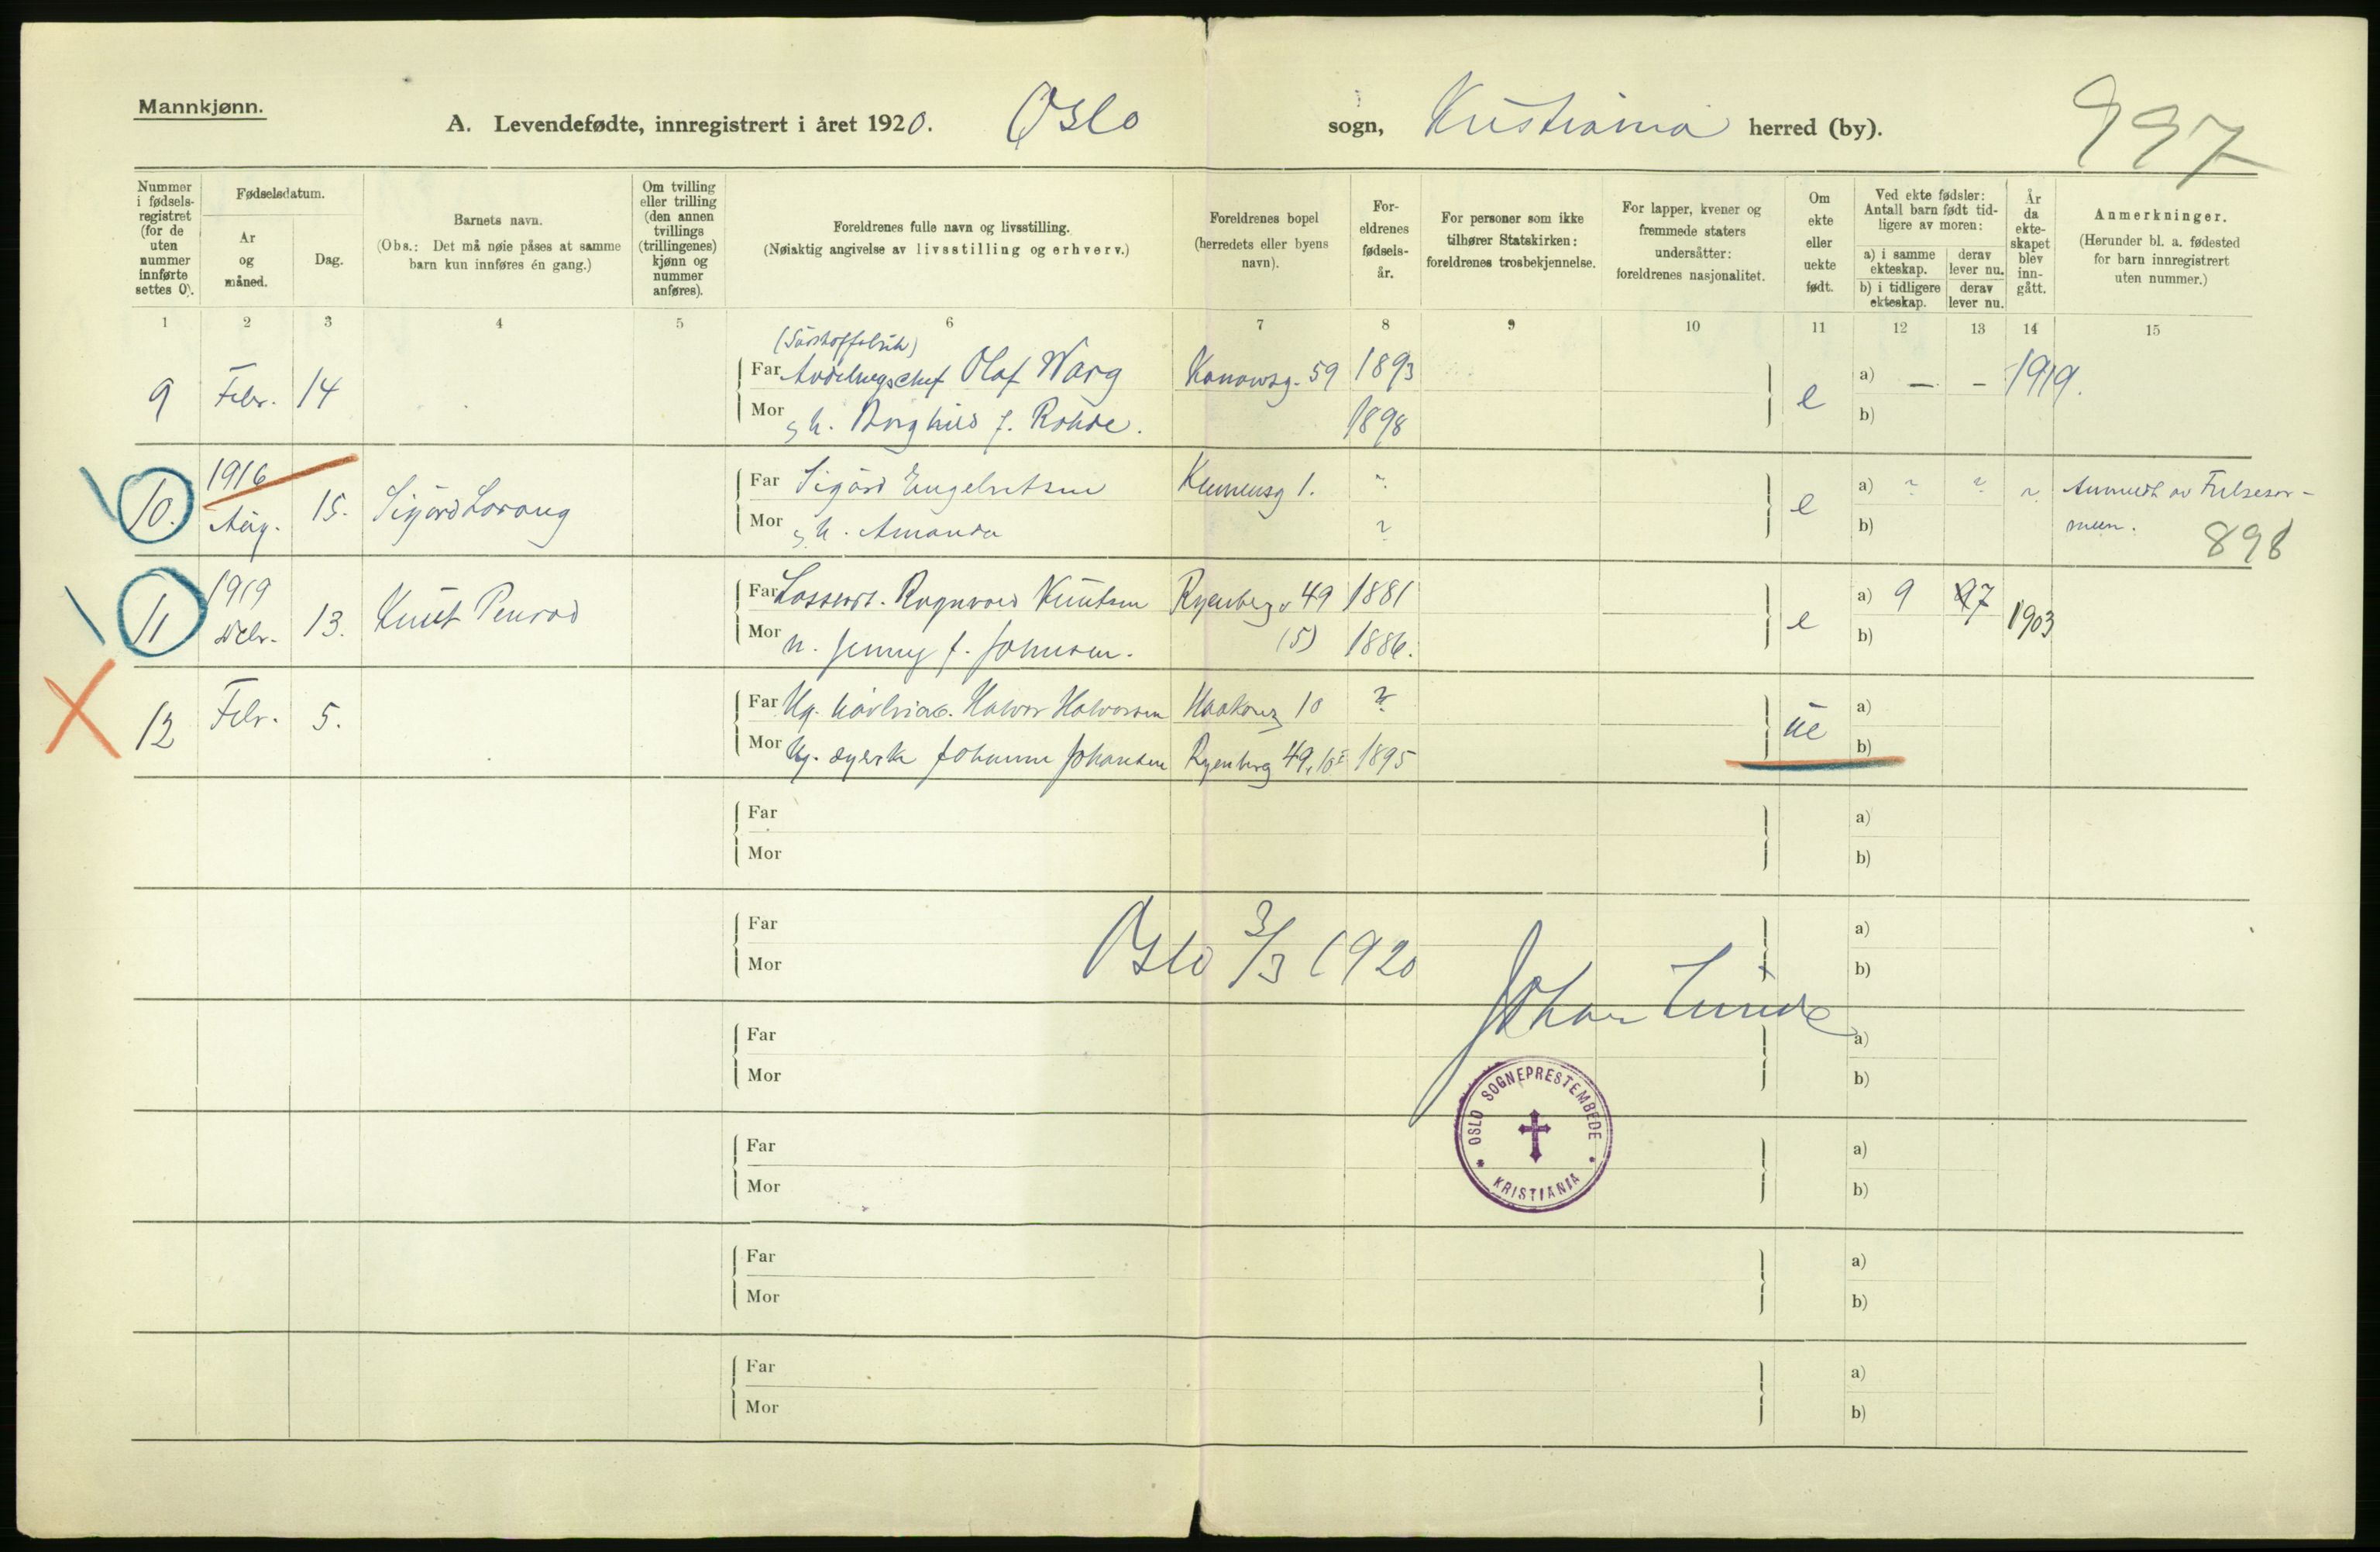 Mannkjønn.
A. Levendefødte, innregistrert i året 1920. Oslo sogn, Kristiania herred (by).
997
Nummer i fødsels-registret (for de uten nummer innførte settes 0).
Fødselsdatum.
År og måned.
Dag.
Barnets navn.
(Obs.: Det må nøie påses at samme barn kun innføres én gang.)
Om tvilling eller trilling (den annen tvillings (trillingenes) kjønn og nummer anføres).
Foreldrenes fulle navn og livsstilling.
(Nøiaktig angivelse av livsstilling og erhverv.)
Foreldrenes bopel (herredets eller byens navn).
For-eldrenes fødsels-år.
For personer som ikke tilhører Statskirken: foreldrenes trosbekjennelse.
For lapper, kvener og fremmede staters undersåtter: foreldrenes nasjonalitet.
Om ekte eller uekte født.
Ved ekte fødsler: Antall barn født tid-ligere av moren:
a) i samme ekteskap.
derav lever nu.
b) i tidligere ekteskap.
derav lever nu.
År da ekte-skapet blev inn-gått.
Anmerkninger.
(Herunder bl. a. fødested for barn innregistrert uten nummer.)
1 2 3 4 5 6 7 8 9 10 11 12 13 14 15
9 Febr. 14 Far Olaf Warg 59 1893 e a) — – 1919.
Mor h. Borghild f. Rohde. 1898 b)
10. 1916 Aug. 15. Sigurd Far Sigurd Engebretsen Klemensg 1. ? e a) ? ? ?
Mor h. Amanda ? b)
898
11 1919 13. Knut Far Ragnvald Knutsen Ryenbergv 49 1881 e a) 9 7 1903
Mor h. Jenny f. Johnsen. (5) 1886. b)
12 Febr. 5. Far Halvor Halvorsen 10 ? ue a)
Mor Johanne Johansen Ryenberg 49, 1895 b)
Far a)
Mor b)
Far a)
Mor b)
Oslo 3/3 1920
Johan Lunde
Far a)
Mor b)
OSLO SOGNEPRESTEMBEDE
KRISTIANIA
Far a)
Mor b)
Far a)
Mor b)
Far a)
Mor b)